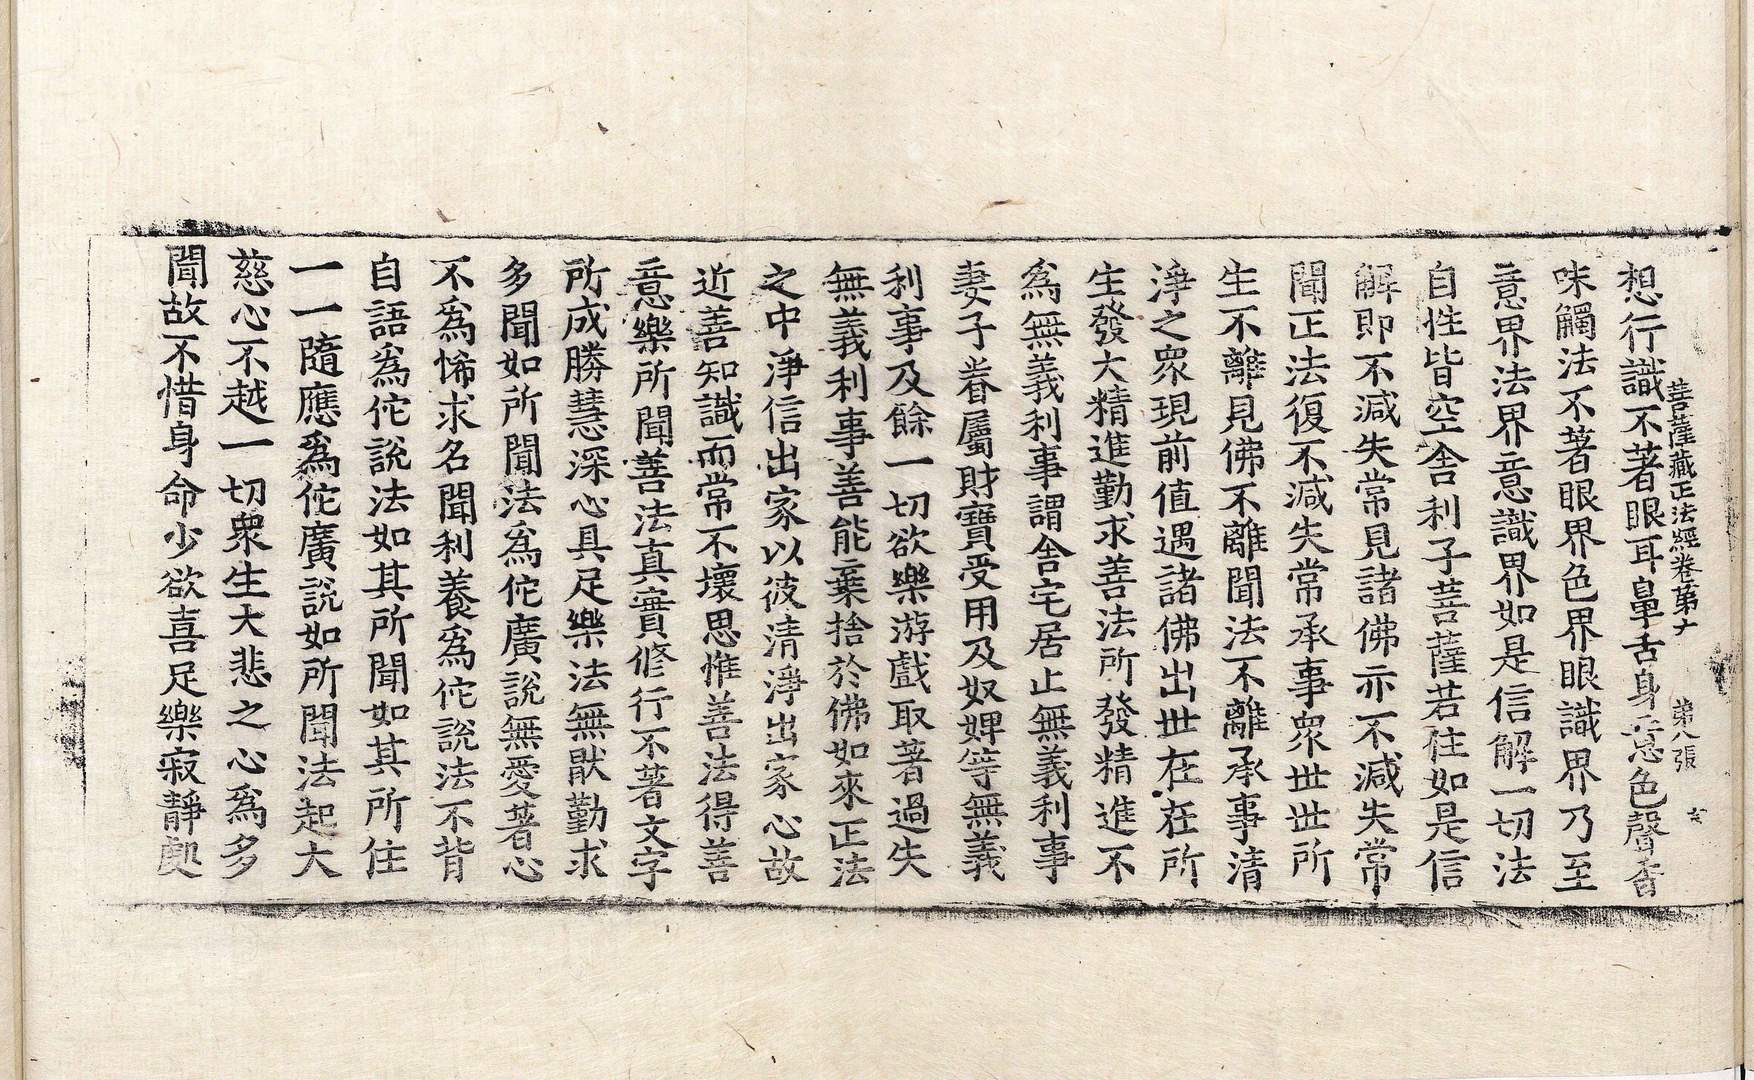 菩薩藏正法經卷第十 第八張 亥
想行識不著眼耳鼻舌身意色聲香
味觸法不著眼界色界眼識界乃至
意界法界意識界如是信解一切法
自性皆空舍利子菩薩若住如是信
解即不減失常見諸佛亦不減失常
聞正法復不減失常承事衆世世所
生不離見佛不離聞法不離承事清
淨之衆現前值遇諸佛出世在在所
生發大精進勤求善法所發精進不
爲無義利事謂舍宅居止無義利事
妻子眷屬財寶受用及奴婢等無義
利事及餘一切欲樂游戲取著過失
無義利事善能棄捨於佛如來正法
之中淨信出家以彼清淨出家心故
近善知識而常不壞思惟善法得善
意樂所聞善法真實修行不著文字
所成勝慧深心具足樂法無猒勤求
多聞如所聞法爲佗廣說無愛著心
不爲悕求名聞利養爲佗說法不背
自語爲佗說法如其所聞如其所住
一一隨應爲佗廣說如所聞法起大
慈心不越一切衆生大悲之心爲多
聞故不惜身命少欲喜足樂寂靜處